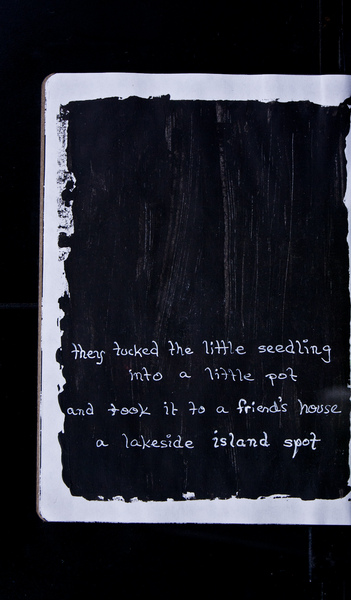 they tucked the little seedling
into a little pot
and took it to a friend's house
a lakeside island spot